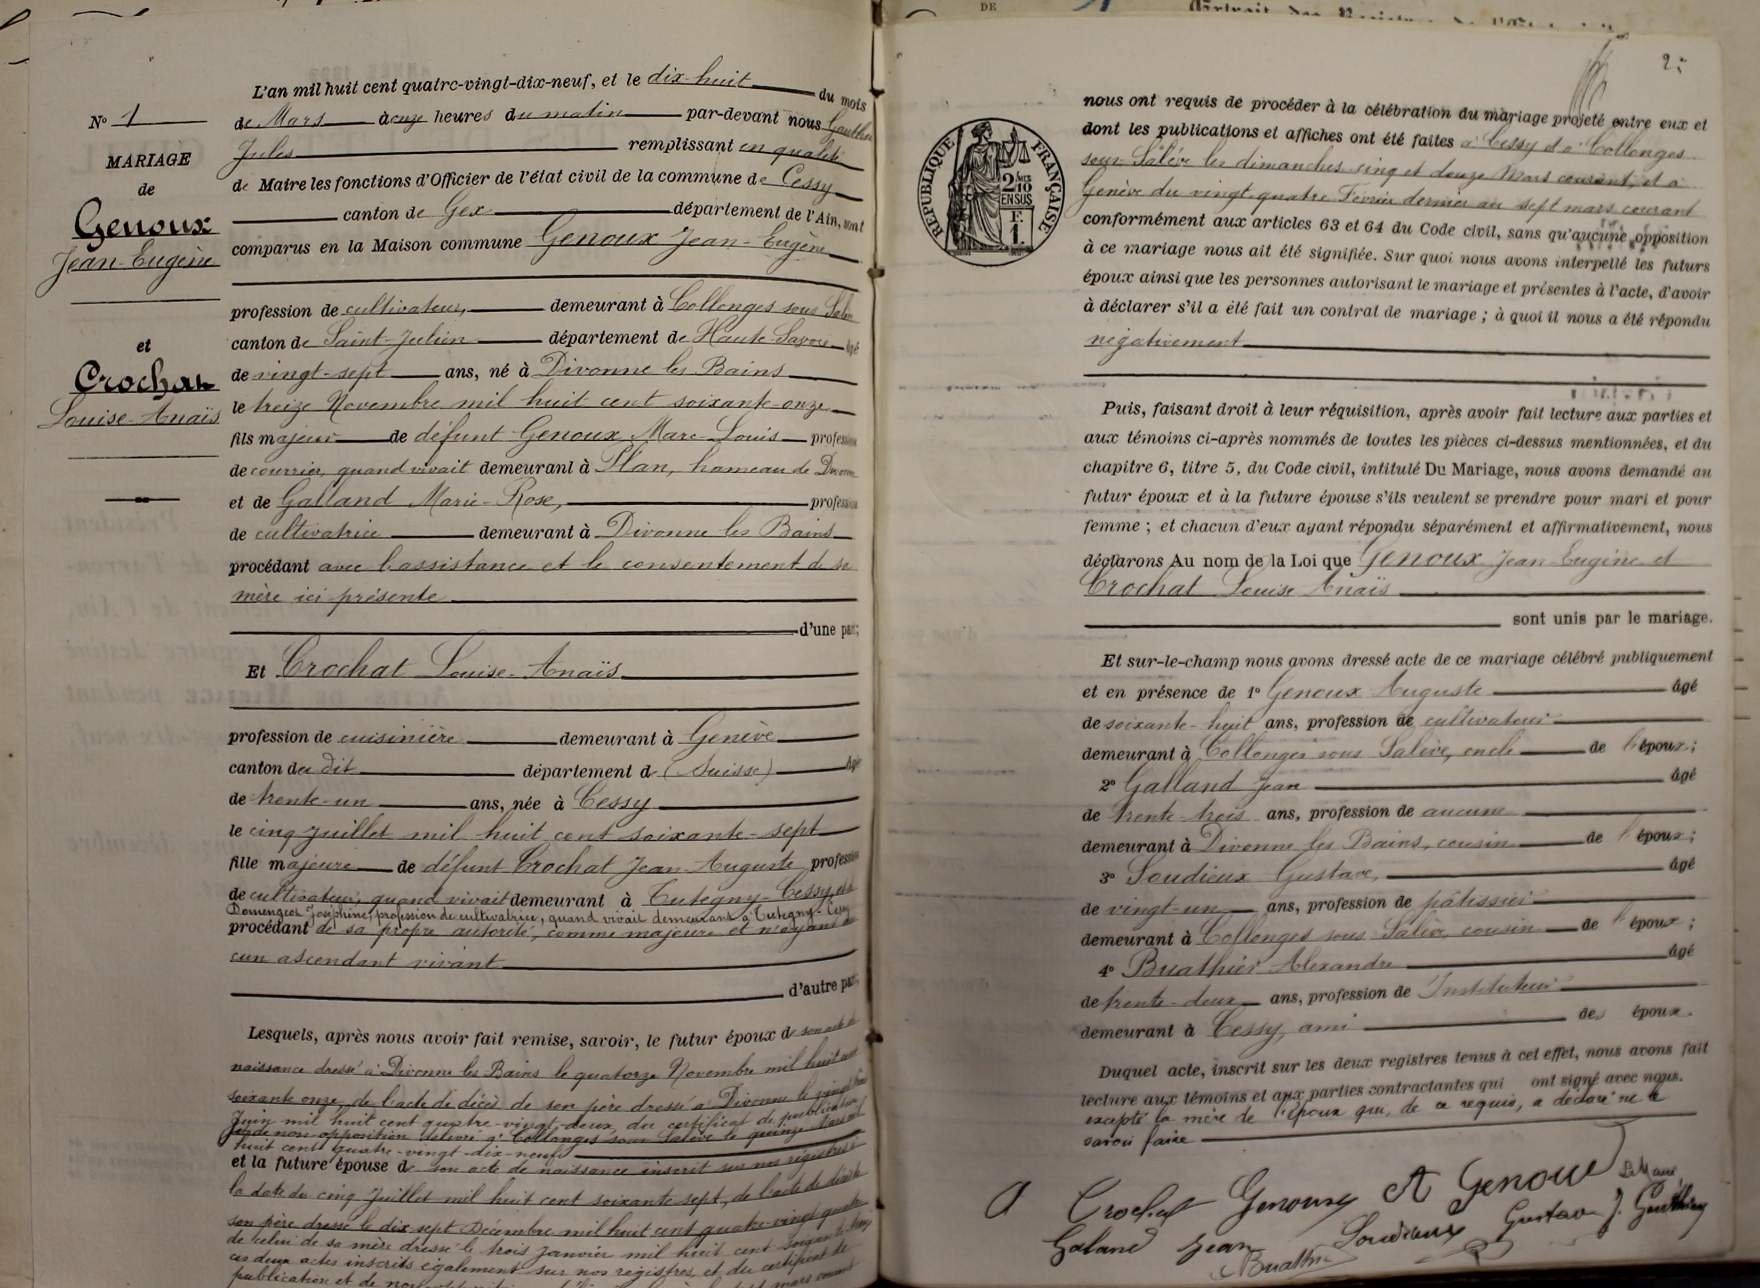 L'an mil huit cent quatre-vingt-dix-neuf, et le dix-huit du mois
de Mars à onze heures du matin par-devant nous Gauthier
Jules remplissant en qualité
de Maire les fonctions d'Officier de l'état civil de la commune de Cessy
canton de Gex département de l'Ain, sont
comparus en la Maison commune Genoux Jean-Eugène
profession de cultivateur, demeurant à Collonges sous Salève
canton de Saint-Julien département de Haute-Savoie âgé
de vingt-sept ans, né à Divonne les Bains
le treize Novembre mil huit cent soixante-onze
fils majeur de défunt Genoux Marc-Louis profession
de courrier, quand vivait demeurant à Plan, hameau de Divonne
et de Galland Marie-Rose, profession
de cultivatrice demeurant à Divonne les Bains
procédant avec l'assistance et le consentement de sa
mère ici présente
d'une part;
Et Crochat Louise-Anaïs
profession de cuisinière demeurant à Genève
canton du dit département d (Suisse) âgé
de trente-un ans, née à Cessy
le cinq Juillet mil huit cent soixante-sept
fille majeure de défunt Crochat Jean-Auguste profession
de cultivateur, quand vivait demeurant à Tutegny-Cessy, et de
Josephine, profession de cultivatrice, quand vivait demeurant à Tutegny-Cessy
procédant de sa propre autorité, comme majeure et n'ayant au
cun ascendant vivant
d'autre part;
Lesquels, après nous avoir fait remise, savoir, le futur époux de son acte de
naissance dressé à Divonne les Bains le quatorze Novembre mil huit cent
soixante onze, de l'acte de décès de son père dressé à Divonne le vingt
Juin mil huit cent quatre-vingt-deux, du certificat de publication
et de non opposition délivré à Collonges sous Salève le quinze Mars mil
huit cent quatre-vingt-dix-neuf
et la future épouse de son acte de naissance inscrit sur nos registres à
la date du cinq Juillet mil huit cent soixante sept, de l'acte de décès de
son père dressé le dix-sept Décembre mil huit cent quatre-vingt quatre
de celui de sa mère dressé le trois Janvier mil huit cent
ces deux actes inscrits également sur nos registres, et du certificat de
publication et de non mars courant
N° 1
MARIAGE
de
Genoux
Jean-Eugène
et
Crochat
Louise-Anaïs
DE
2
RÉPUBLIQUE FRANÇAISE
2/10
EN SUS
F.
1
nous ont requis de procéder à la célébration du mariage projeté entre eux et
dont les publications et affiches ont été faites à Cessy et à Collonges
sous Salève les dimanches cinq et douze Mars courant, et à
Genève du vingt-quatre Février dernier au sept mars courant
conformément aux articles 63 et 64 du Code civil, sans qu'aucune opposition
à ce mariage nous ait été signifiée. Sur quoi nous avons interpellé les futurs
époux ainsi que les personnes autorisant le mariage et présentes à l'acte, d'avoir
à déclarer s'il a été fait un contrat de mariage ; à quoi il nous a été répondu
négativement
Puis, faisant droit à leur réquisition, après avoir fait lecture aux parties et
aux témoins ci-après nommés de toutes les pièces ci-dessus mentionnées, et du
chapitre 6, titre 5, du Code civil, intitulé Du Mariage, nous avons demandé au
futur époux et à la future épouse s'ils veulent se prendre pour mari et pour
femme ; et chacun d'eux ayant répondu séparément et affirmativement, nous
déclarons Au nom de la Loi que Genoux Jean-Eugène et
Crochat Louise Anaïs
sont unis par le mariage.
Et sur-le-champ nous avons dressé acte de ce mariage célébré publiquement
et en présence de 1° Genoux Auguste âgé
de soixante-huit ans, profession de cultivateur
demeurant à Collonges sous Salève, oncle de l'époux;
2° Galland Jean âgé
de trente-trois ans, profession de aucune
demeurant à Divonne les Bains, cousin de l'époux;
3° Soudieux Gustave, âgé
de vingt-un ans, profession de pâtissier
demeurant à Collonges sous Salève, cousin de l'époux;
4° Buathier Alexandre âgé
de trente-deux ans, profession de Instituteur
demeurant à Cessy, ami des époux.
Duquel acte, inscrit sur les deux registres tenus à cet effet, nous avons fait
lecture aux témoins et aux parties contractantes qui ont signé avec nous.
excepté la mère de l'époux qui, de ce requis, a déclaré ne le
savoir faire
A Crochat Genoux A Genoux Le Maire
Galand Jean Soudieux Gustave J. Gauthier
Buathier